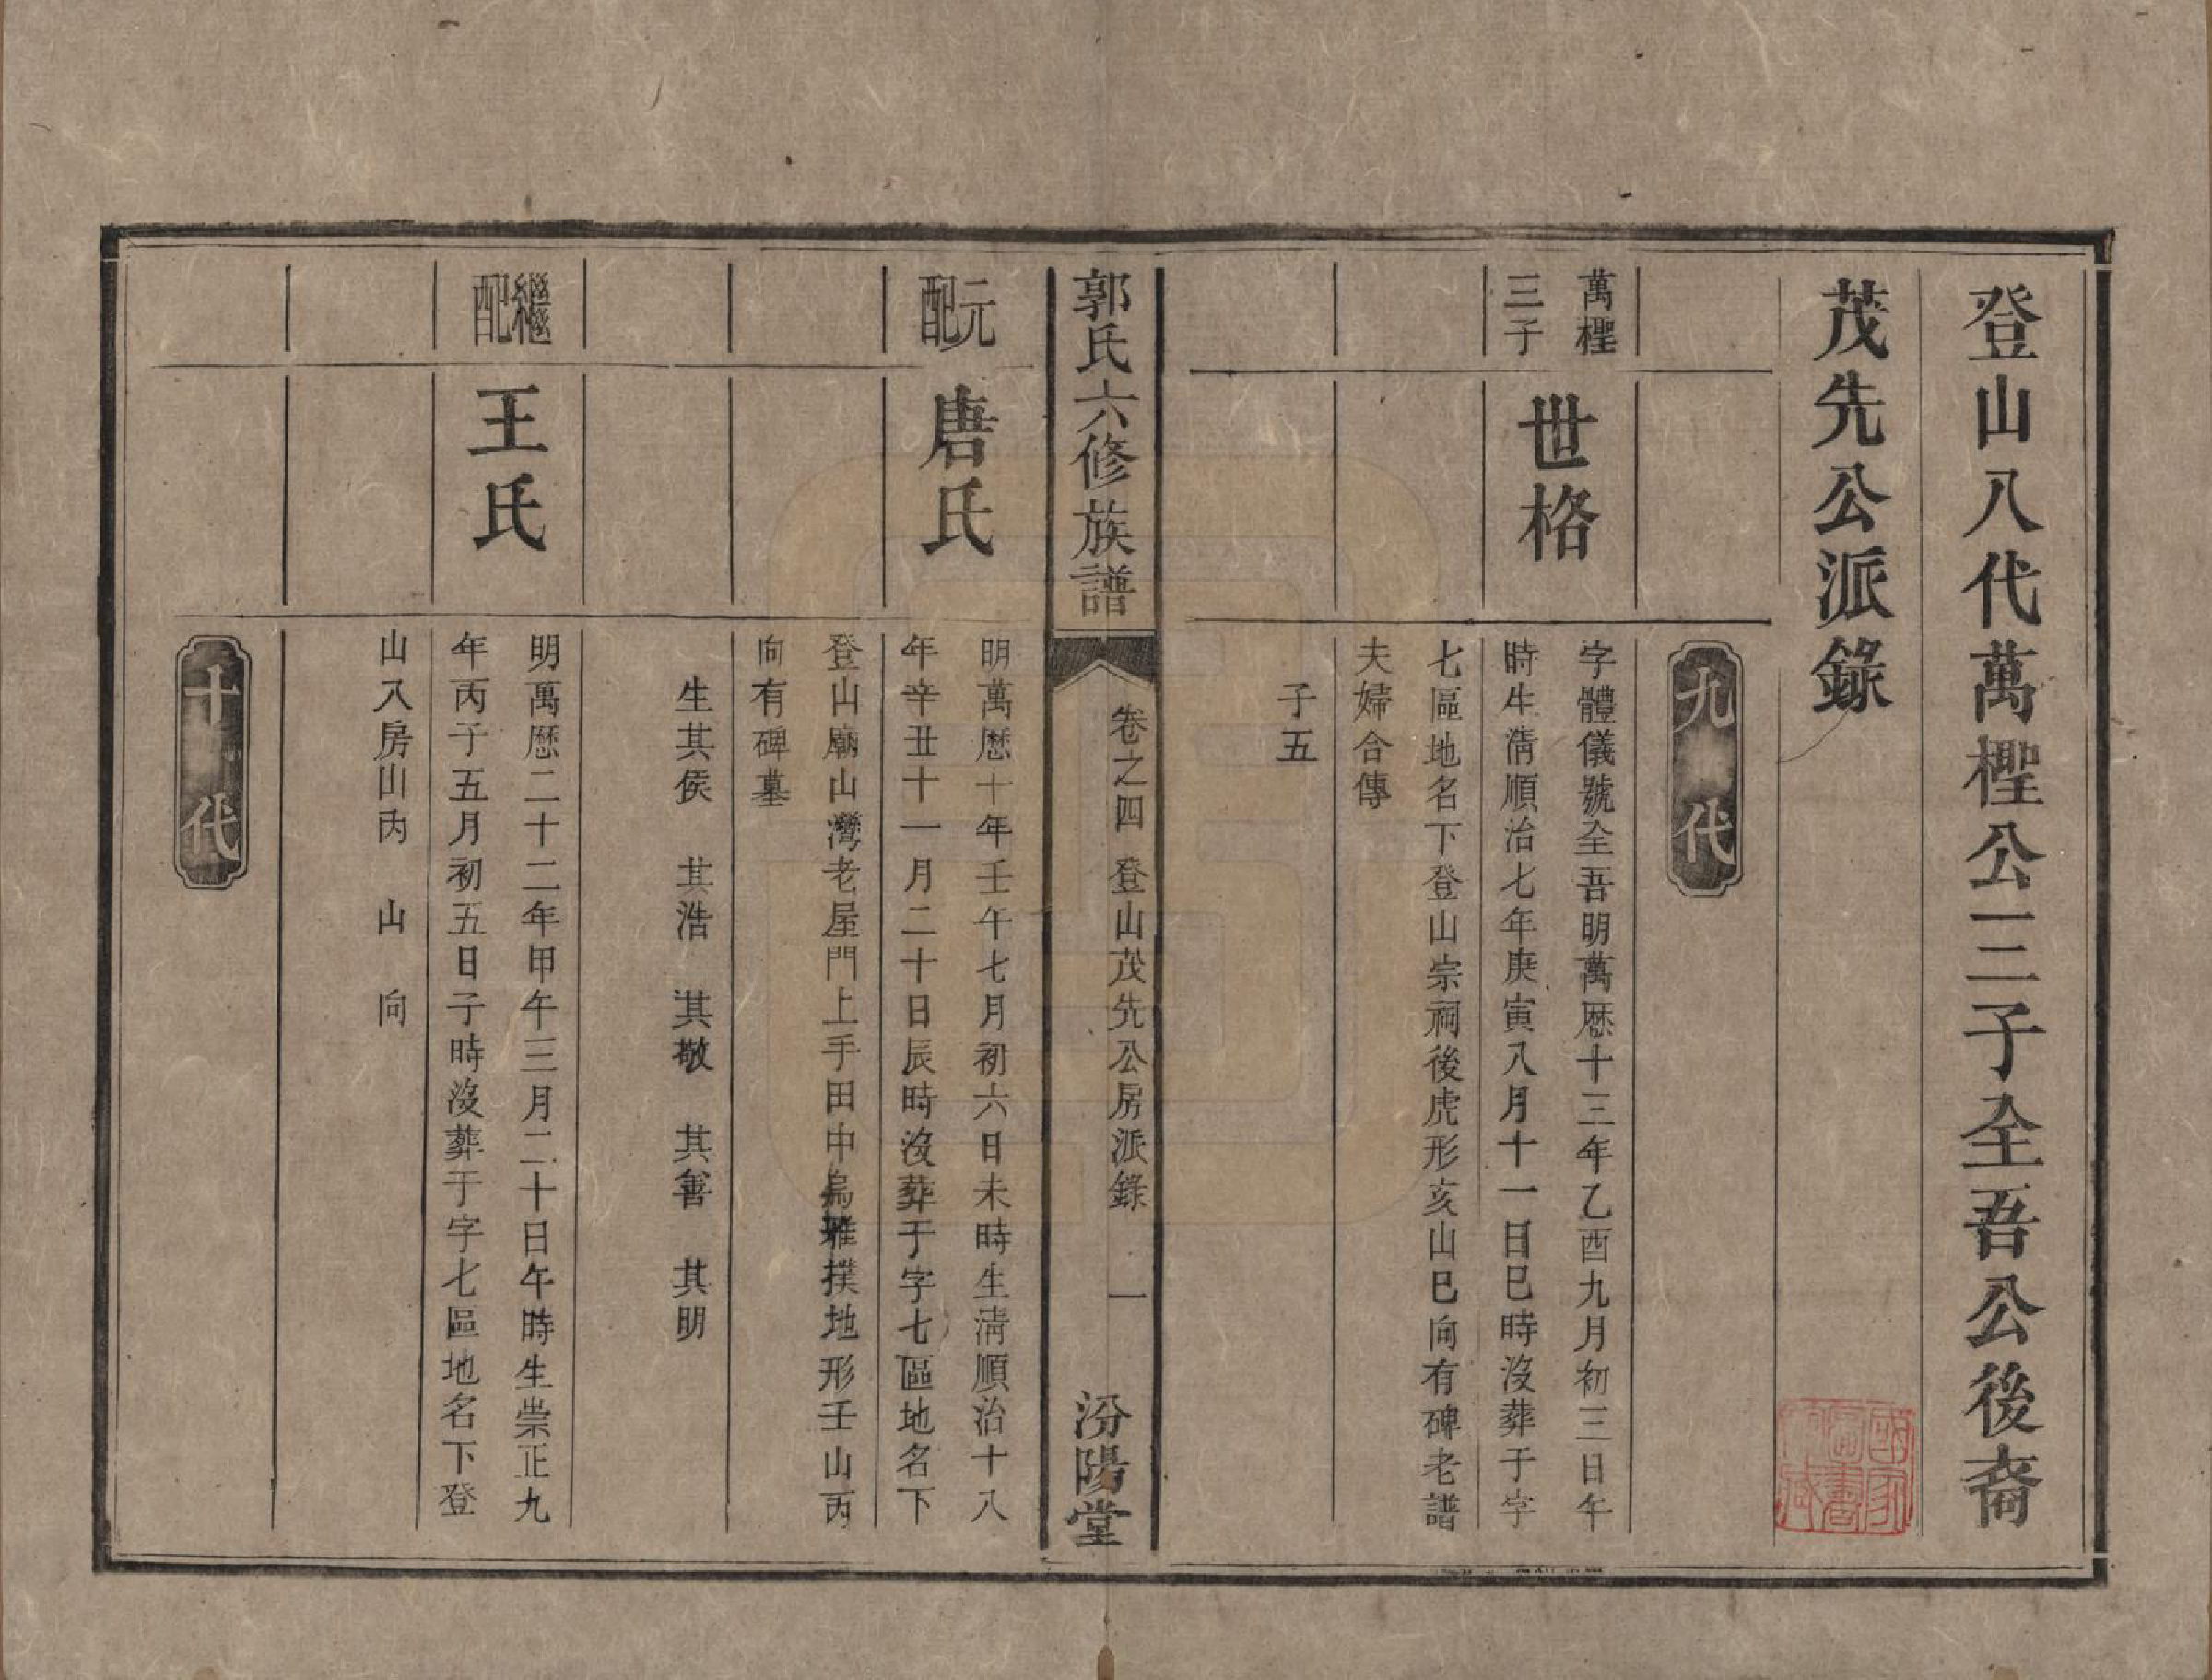 登山八代萬檉公三子全吾公後裔
茂先公派錄
九代
萬檉
三子
世格
字體儀號全吾明萬厯十三年乙酉九月初三日午
時生清順治七年庚寅八月十一日巳時沒葬于字
七區地名下登山宗祠後虎形亥山巳向有碑老譜
夫婦合傳
子五
郭氏六修族譜
卷之四 登山茂先公房派錄 一
汾陽堂
元配
唐氏
明萬厯十年壬午七月初六日未時生清順治十八
年辛丑十一月二十日辰時沒葬于字七區地名下
登山廟山灣老屋門上手田中烏雅撲地形壬山丙
向有碑墓
生其侯 其浩 其敬 其善 其明
繼配
王氏
明萬厯二十二年甲午三月二十日午時生崇正九
年丙子五月初五日子時沒葬于字七區地名下登
山入房山內 山 向
十代